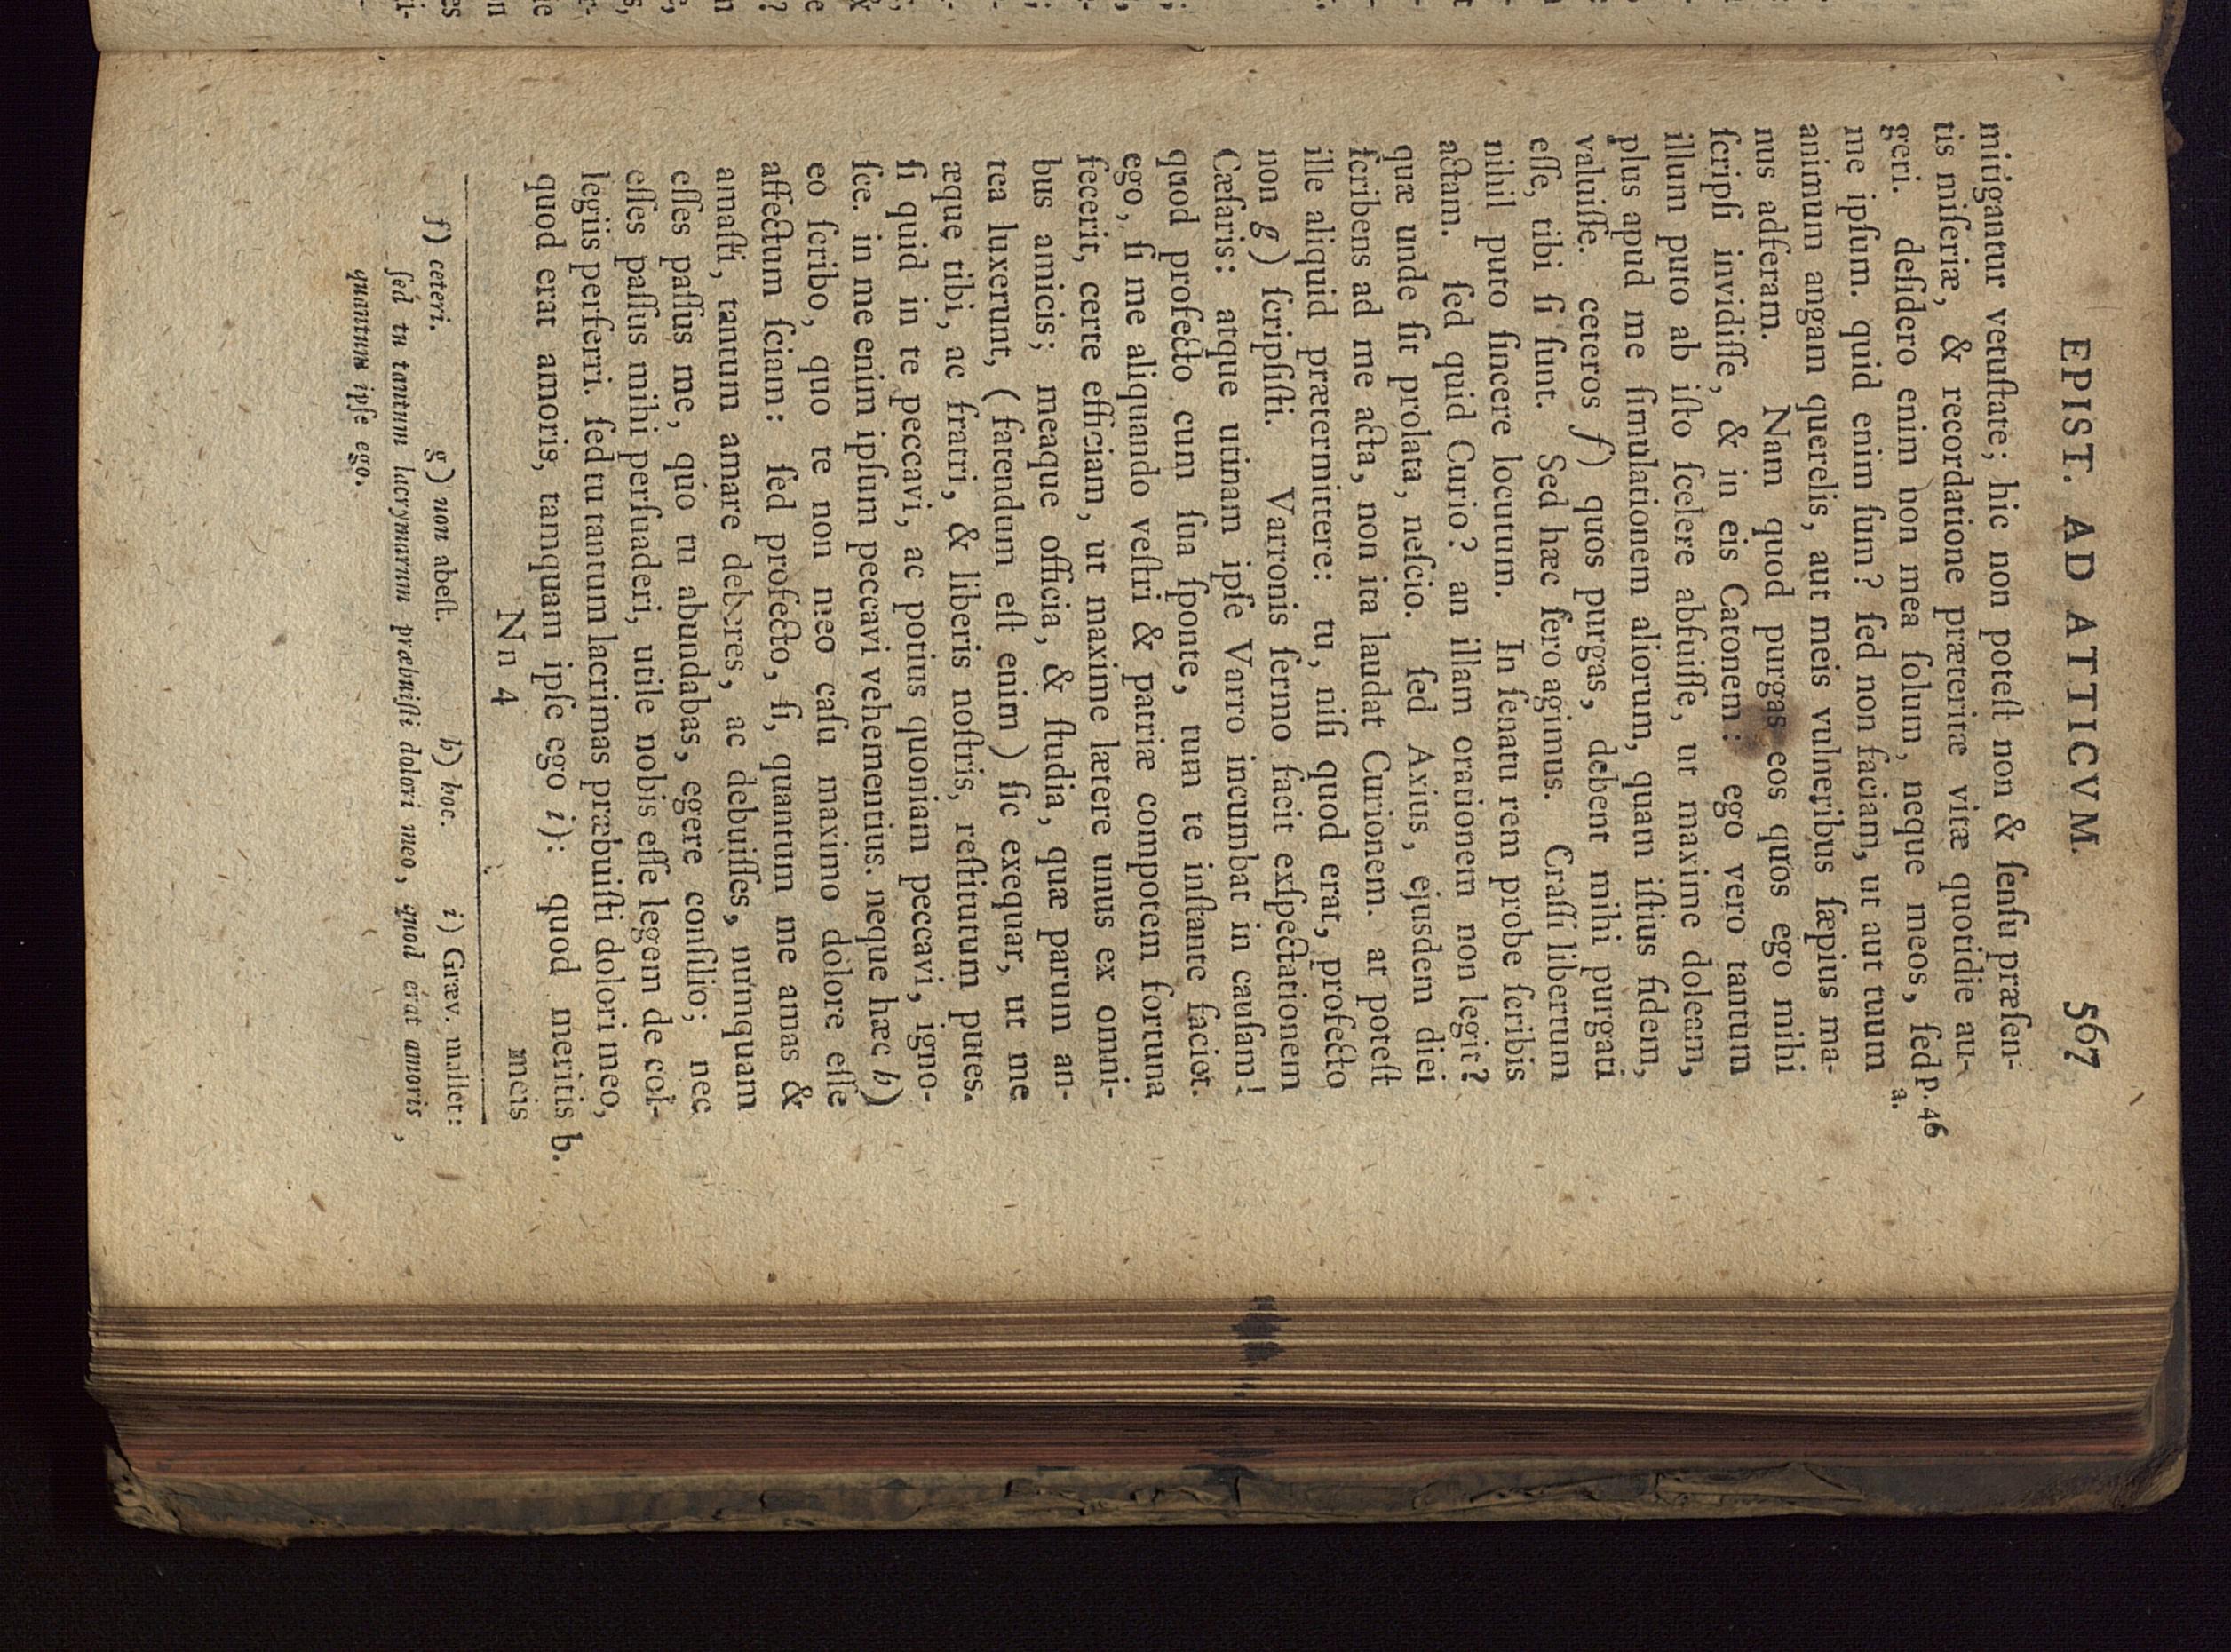 EPIST. AD ATTICVM. 567
mitigantur vetuſtate; hic non poteſt non & ſenſu præſen-
tis miſeriæ, & recordatione præteritæ vitæ quotidie au-
geri. deſidero enim non mea ſolum, neque meos, ſed p. 46
me ipſum. quid enim ſum? ſed non faciam, ut aut tuum a.
animum angam querelis, aut meis vulneribus ſæpius ma-
nus adferam. Nam quod purgas eos quos ego mihi
ſcripſi invidiſſe, & in eis Catonem: ego vero tantum
illum puto ab iſto ſcelere abfuiſſe, ut maxime doleam,
plus apud me ſimulationem aliorum, quam iſtius fidem,
valuiſſe. ceteros f) quos purgas, debent mihi purgati
eſſe, tibi ſi ſunt. Sed hæc ſero agimus. Craſſi libertum
nihil puto ſincere locutum. In ſenatu rem probe ſcribis
actam. ſed quid Curio? an illam orationem non legit?
quæ unde ſit prolata, neſcio. ſed Axius, ejusdem diei
ſcribens ad me acta, non ita laudat Curionem. at poteſt
ille aliquid prætermittere: tu, niſi quod erat, profecto
non g) ſcripſiſti. Varronis ſermo facit exſpectationem
Cæſaris: atque utinam ipſe Varro incumbat in cauſam!
quod profecto cum ſua ſponte, tum te inſtante faciet.
ego, ſi me aliquando veſtri & patriæ compotem fortuna
fecerit, certe efficiam, ut maxime lætere unus ex omni-
bus amicis; meaque officia, & ſtudia, quæ parum an-
tea luxerunt, (fatendum eſt enim) ſic exequar, ut me
æque tibi, ac fratri, & liberis noſtris, reſtitutum putes.
ſi quid in te peccavi, ac potius quoniam peccavi, igno-
ſce. in me enim ipſum peccavi vehementius. neque hæc h)
eo ſcribo, quo te non meo caſu maximo dolore eſſe
affectum ſciam: ſed profecto, ſi, quantum me amas &
amaſti, tantum amare deberes, ac debuiſſes, numquam
eſſes paſſus me, quo tu abundabas, egere conſilio; nec
eſſes paſſus mihi perſuaderi, utile nobis eſſe legem de col-
legiis perferri. ſed tu tantum lacrimas præbuiſti dolori meo,
quod erat amoris, tamquam ipſe ego i): quod meritis b.
N n 4 meis
f) ceteri. g) non abeſt. h) hoc. i) Græv. mallet:
ſed tu tantum lacrymarum præbuiſti dolori meo, quod erat amoris,
quantum ipſe ego.